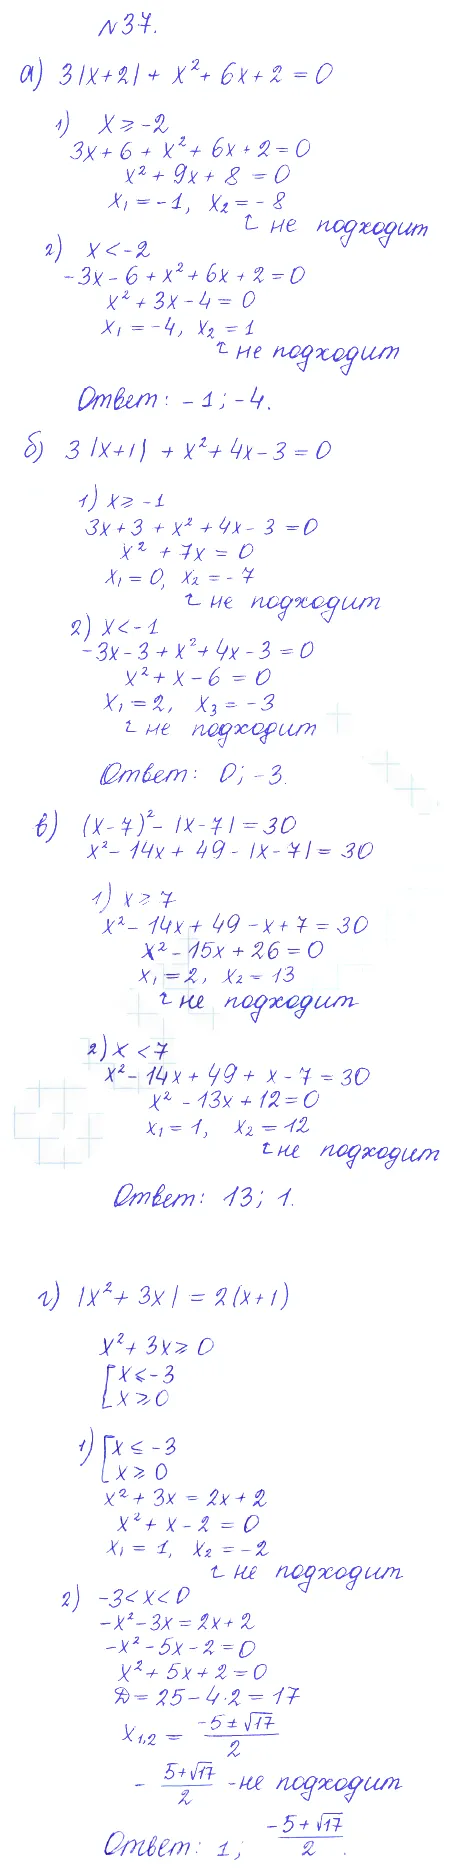 №37.
а) 3|x+2| + x² + 6x + 2 = 0
1) x ≥ -2
3x + 6 + x² + 6x + 2 = 0
x² + 9x + 8 = 0
x₁ = -1, x₂ = -8
↑ не подходит
2) x < -2
-3x - 6 + x² + 6x + 2 = 0
x² + 3x - 4 = 0
x₁ = -4, x₂ = 1
↑ не подходит
Ответ: -1; -4.
б) 3|x+1| + x² + 4x - 3 = 0
1) x ≥ -1
3x + 3 + x² + 4x - 3 = 0
x² + 7x = 0
x₁ = 0, x₂ = -7
↑ не подходит
2) x < -1
-3x - 3 + x² + 4x - 3 = 0
x² + x - 6 = 0
x₁ = 2, x₃ = -3
↑ не подходит
Ответ: 0; -3.
в) (x-7)² - |x-7| = 30
x² - 14x + 49 - |x-7| = 30
1) x ≥ 7
x² - 14x + 49 - x + 7 = 30
x² - 15x + 26 = 0
x₁ = 2, x₂ = 13
↑ не подходит
2) x < 7
x² - 14x + 49 + x - 7 = 30
x² - 13x + 12 = 0
x₁ = 1, x₂ = 12
↑ не подходит
Ответ: 13; 1.
г) |x² + 3x| = 2(x+1)
x² + 3x ≥ 0
[x ≤ -3
[x ≥ 0
1) [x ≤ -3
[x ≥ 0
x² + 3x = 2x + 2
x² + x - 2 = 0
x₁ = 1, x₂ = -2
↑ не подходит
2) -3 < x < 0
-x² - 3x = 2x + 2
-x² - 5x - 2 = 0
x² + 5x + 2 = 0
D = 25 - 4·2 = 17
x₁,₂ = (-5 ± √17)/2
- (5+√17)/2 - не подходит
Ответ: 1; (-5+√17)/2.